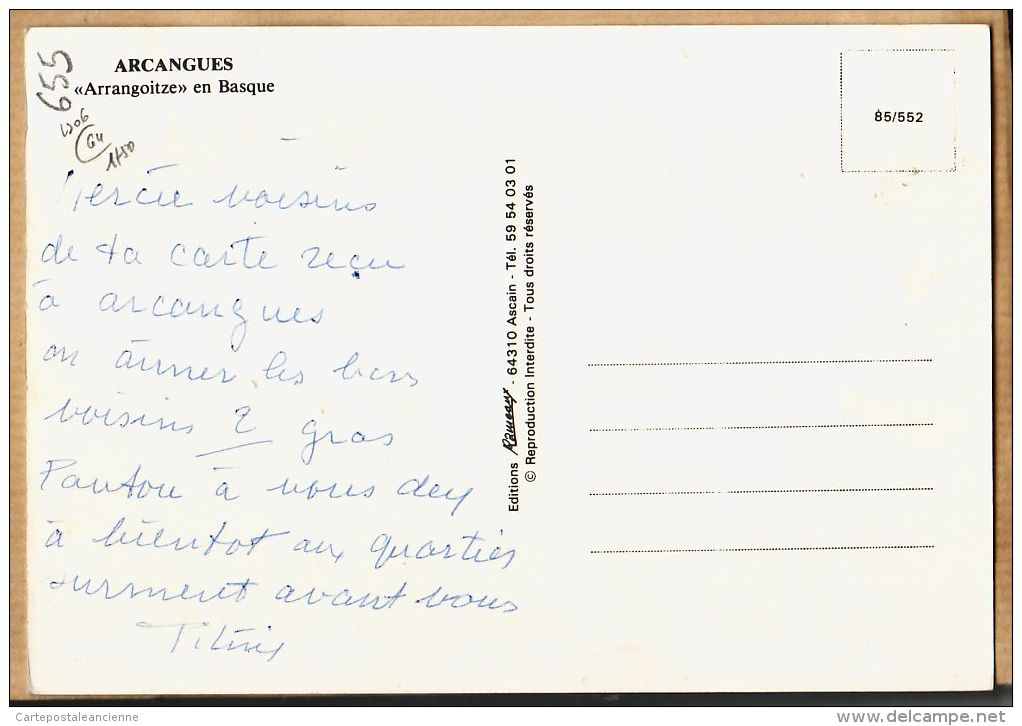 ARCANGUES
«Arrangoitze» en Basque
655
1906
64
1450
85/552
Mercie voisins
de ta carte reçu
à arcangues
on aimer les bons
voisins 2 gros
Pantou à vous deux
à bientot aux quartier
surment avant vous
Editions Ramuntcho - 64310 Ascain - Tél. 59 54 03 01
© Reproduction Interdite - Tous droits réservés
Cartepostaleancienne
delcampe.net